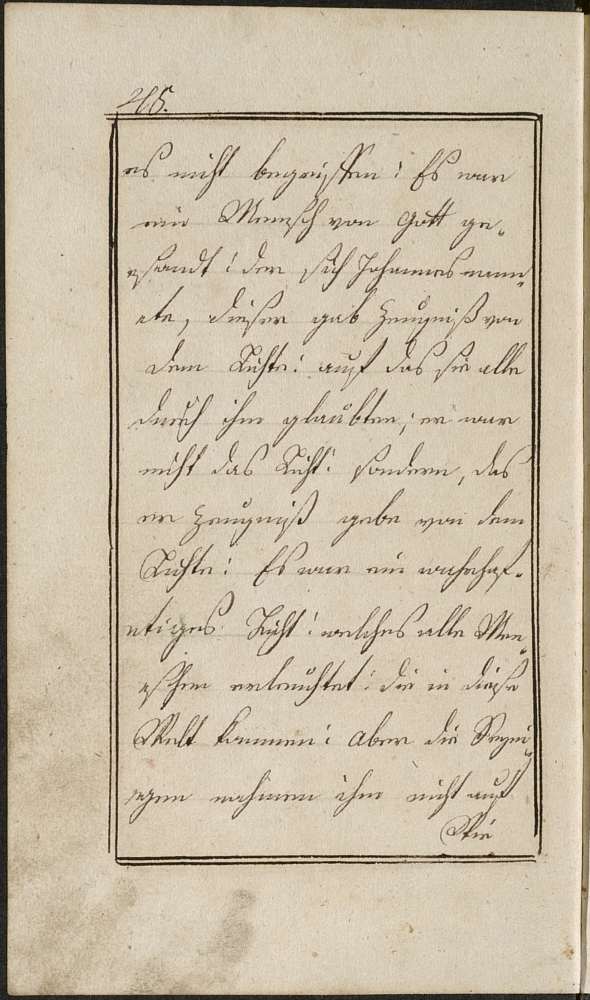 48.
es nicht begreiffen: Es war
ein Mensch von Gott ge„
sandt: der sich Johannes nenn„
ete, dieser gab Zeugniß von
dem Lichte: auf das sie alle
durch ihn glaubten; er war
nicht das Licht: sondern, das
er Zeugniß gebe von dem
Lichte: Es war ein wahrhaf„
tiges Licht: welches alle Men„
schen erleuchtet: die in diese
Welt kommen: Aber die Seyni„
gen nahmen ihn nicht auf
Wie